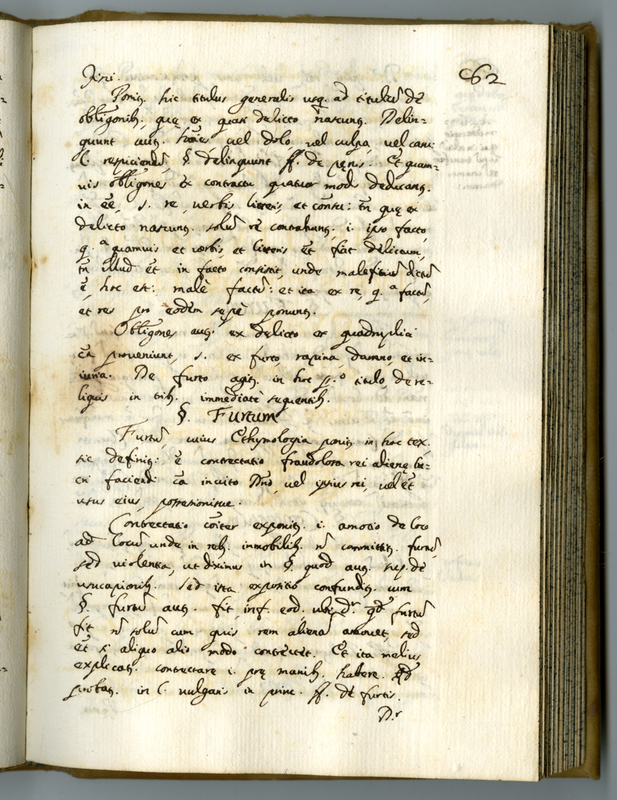 62
Ponitur hic titulus generalis usq. ad titulum de
obligonib. quę ex quasi delicto nascunt. Delin-
quunt aut. hoies vel dolo, vel culpa, vel casu
l. respiciendum § delinquunt ff. de pęnis. Et quam-
vis obligones ex contractu quatuor mod. deducant.
in eē, s. re, verbis, litteris, et consu: tn̄ quę ex
delicto nascunt. solum re contrahunt. i. ipso facto,
q.ᵃ quamvis et verbis et litteris ēt fiat delictum,
tn̄ illud ēt in facto consistit unde maleficium dictum
ē hoc est: male factum: et ita ex re, q.ᵃ factum,
et res pro eodem sępe ponunt.
Obligones aut. ex delicto ex quadruplici
cā proveniunt, s. ex furto, rapina, damno, et in-
iuria. De furto agit. in hoc pᵒ titulo, de re-
liquis in trib. immediate sequentib.
§. Furtum
Furtum cuius Ethymologia ponit. in hoc tex.
sic definit: ē contrectatio fraudolosa rei alienę lu-
cri faciendi cā invito Dn̄o, vel ipsius rei, vel ēt
usus eius possessionisve.
Contrectatio cōiter exponit. i. amotio de loco
ad locum unde in reb. immobilib. n̄ committit. furtum
sed violentia, ut diximus in §. quod aut. sup. de
usucapionib. Sed ista expositio confundit. cum
§. furtum aut. fit inf. eod. ubi dr. qd furtum
fit n̄ solum cum quis rem alienam amovet, sed
ēt si aliquo alio modo contrectet. Et ita melius
explicat. contrectare i. prę manib. habere
probat. in l. vulgaris in princ. ff. de furtis.
Dʳ